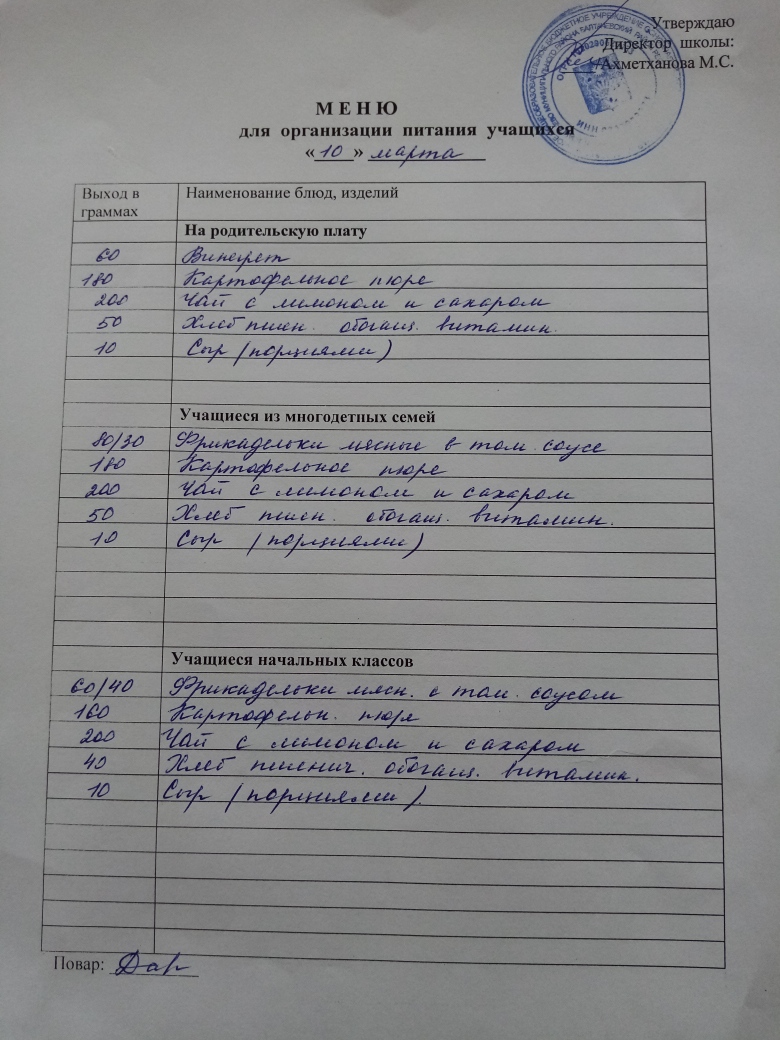 Утверждаю
Директор школы:
/Ахметханова М.С.
МЕНЮ
для организации питания учащихся
« 10 » марта
Выход в граммах Наименование блюд, изделий
На родительскую плату
60 Винегрет
180 Картофельное пюре
200 Чай с лимоном и сахаром
50 Хлеб пшен. обогащ. витамин.
10 Сыр (порциями)
Учащиеся из многодетных семей
80/30 Фрикадельки мясные в том. соусе
180 Картофельное пюре
200 Чай с лимоном и сахаром
50 Хлеб пшен. обогащ. витамин.
10 Сыр (порциями)
Учащиеся начальных классов
60/40 Фрикадельки мясн. с том. соусом
160 Картофельн. пюре
200 Чай с лимоном и сахаром
40 Хлеб пшенич. обогащ. витамин.
10 Сыр (порциями).
Повар: